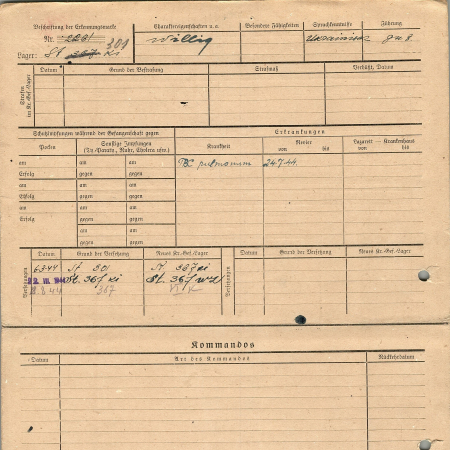 Beschriftung der Erkennungsmarke
Nr.
Lager: St 367 Ki 301
Charaktereigenschaften u. a.
Willig
Besondere Fähigkeiten
Sprachkenntnisse
Führung
gut
Strafen im Kr.-Gef.-Lager
Datum
Grund der Bestrafung
Strafmaß
Verbüßt, Datum
Schutzimpfungen während der Gefangenschaft gegen
Erkrankungen
Pocken
Sonstige Impfungen
(Ty.-Paraty., Ruhr, Cholera usw.)
Krankheit
Revier
von bis
Lazarett — Krankenhaus
von bis
am am am
Erfolg gegen gegen
TBC pulmonum 24.7.44.
am am am
Erfolg gegen gegen
am am am
Erfolg gegen gegen
am am
gegen gegen
Versetzungen
Datum Grund der Versetzung Neues Kr.-Gef.-Lager
Datum Grund der Versetzung Neues Kr.-Gef.-Lager
St 301 St 367 Ki
St. 367 Ki St. 367
367 VI K
Kommandos
Datum Art des Kommandos Rückkehrdatum